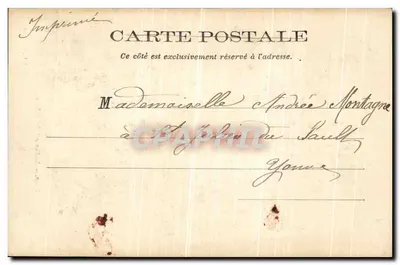 Imprimé
CARTE POSTALE
Ce côté est exclusivement réservé à l'adresse.
Mademoiselle Andrée Montagne
à St du Sault
Yonne